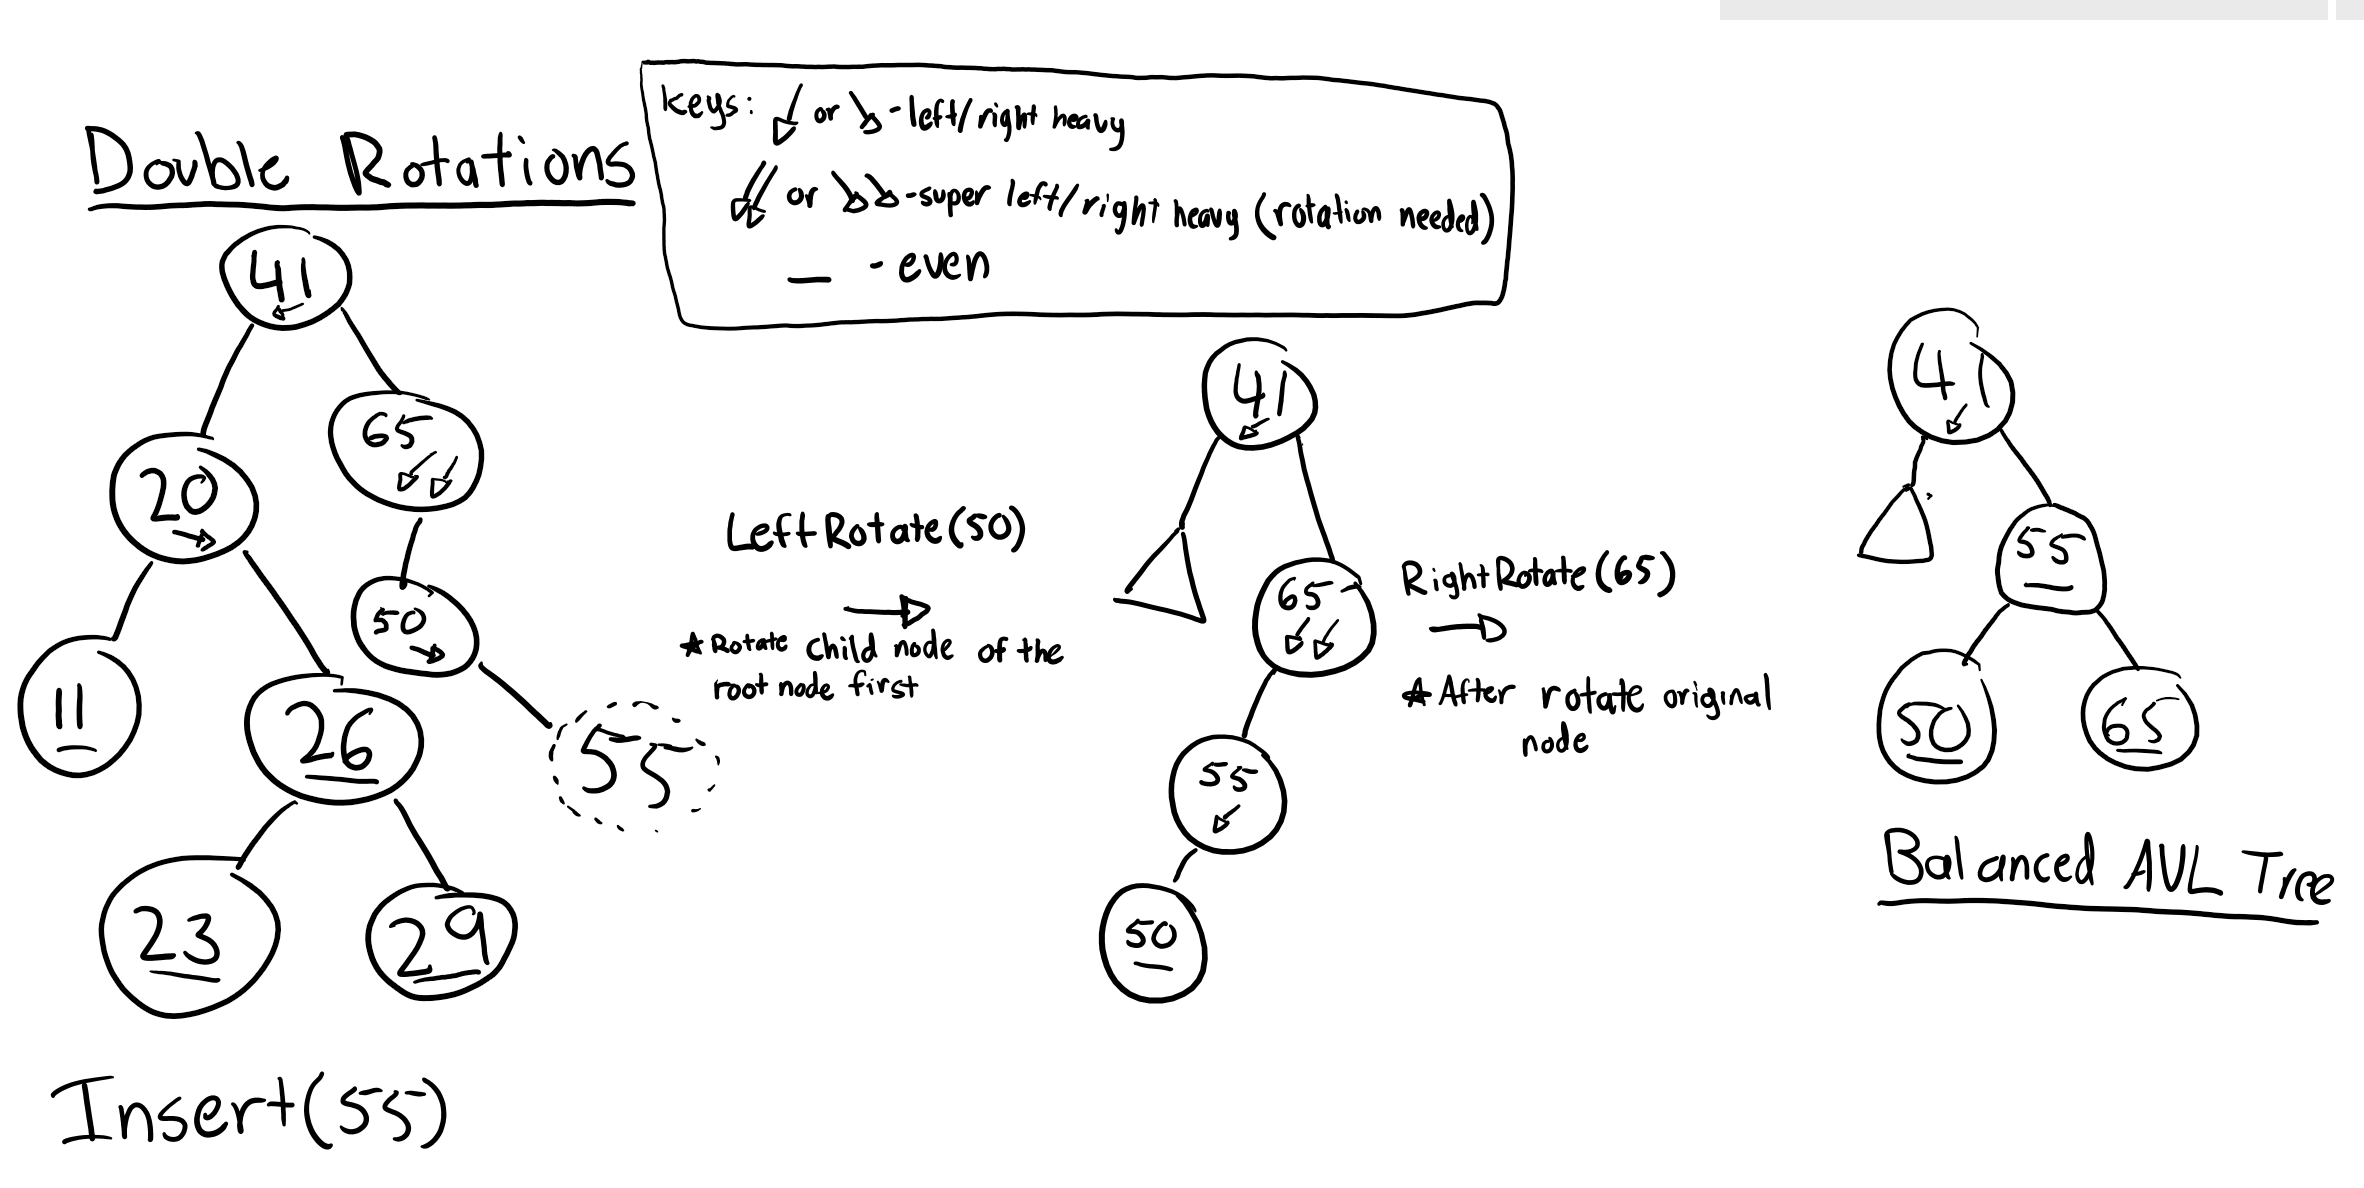 Double Rotations
keys: or - left/right heavy
or - super left/right heavy (rotation needed)
_ - even
41
65
20
50
11
26
55
23
29
Insert(55)
LeftRotate(50)
★ Rotate child node of the
root node first
41
65
55
50
RightRotate(65)
★ After rotate original
node
41
55
50
65
Balanced AVL Tree